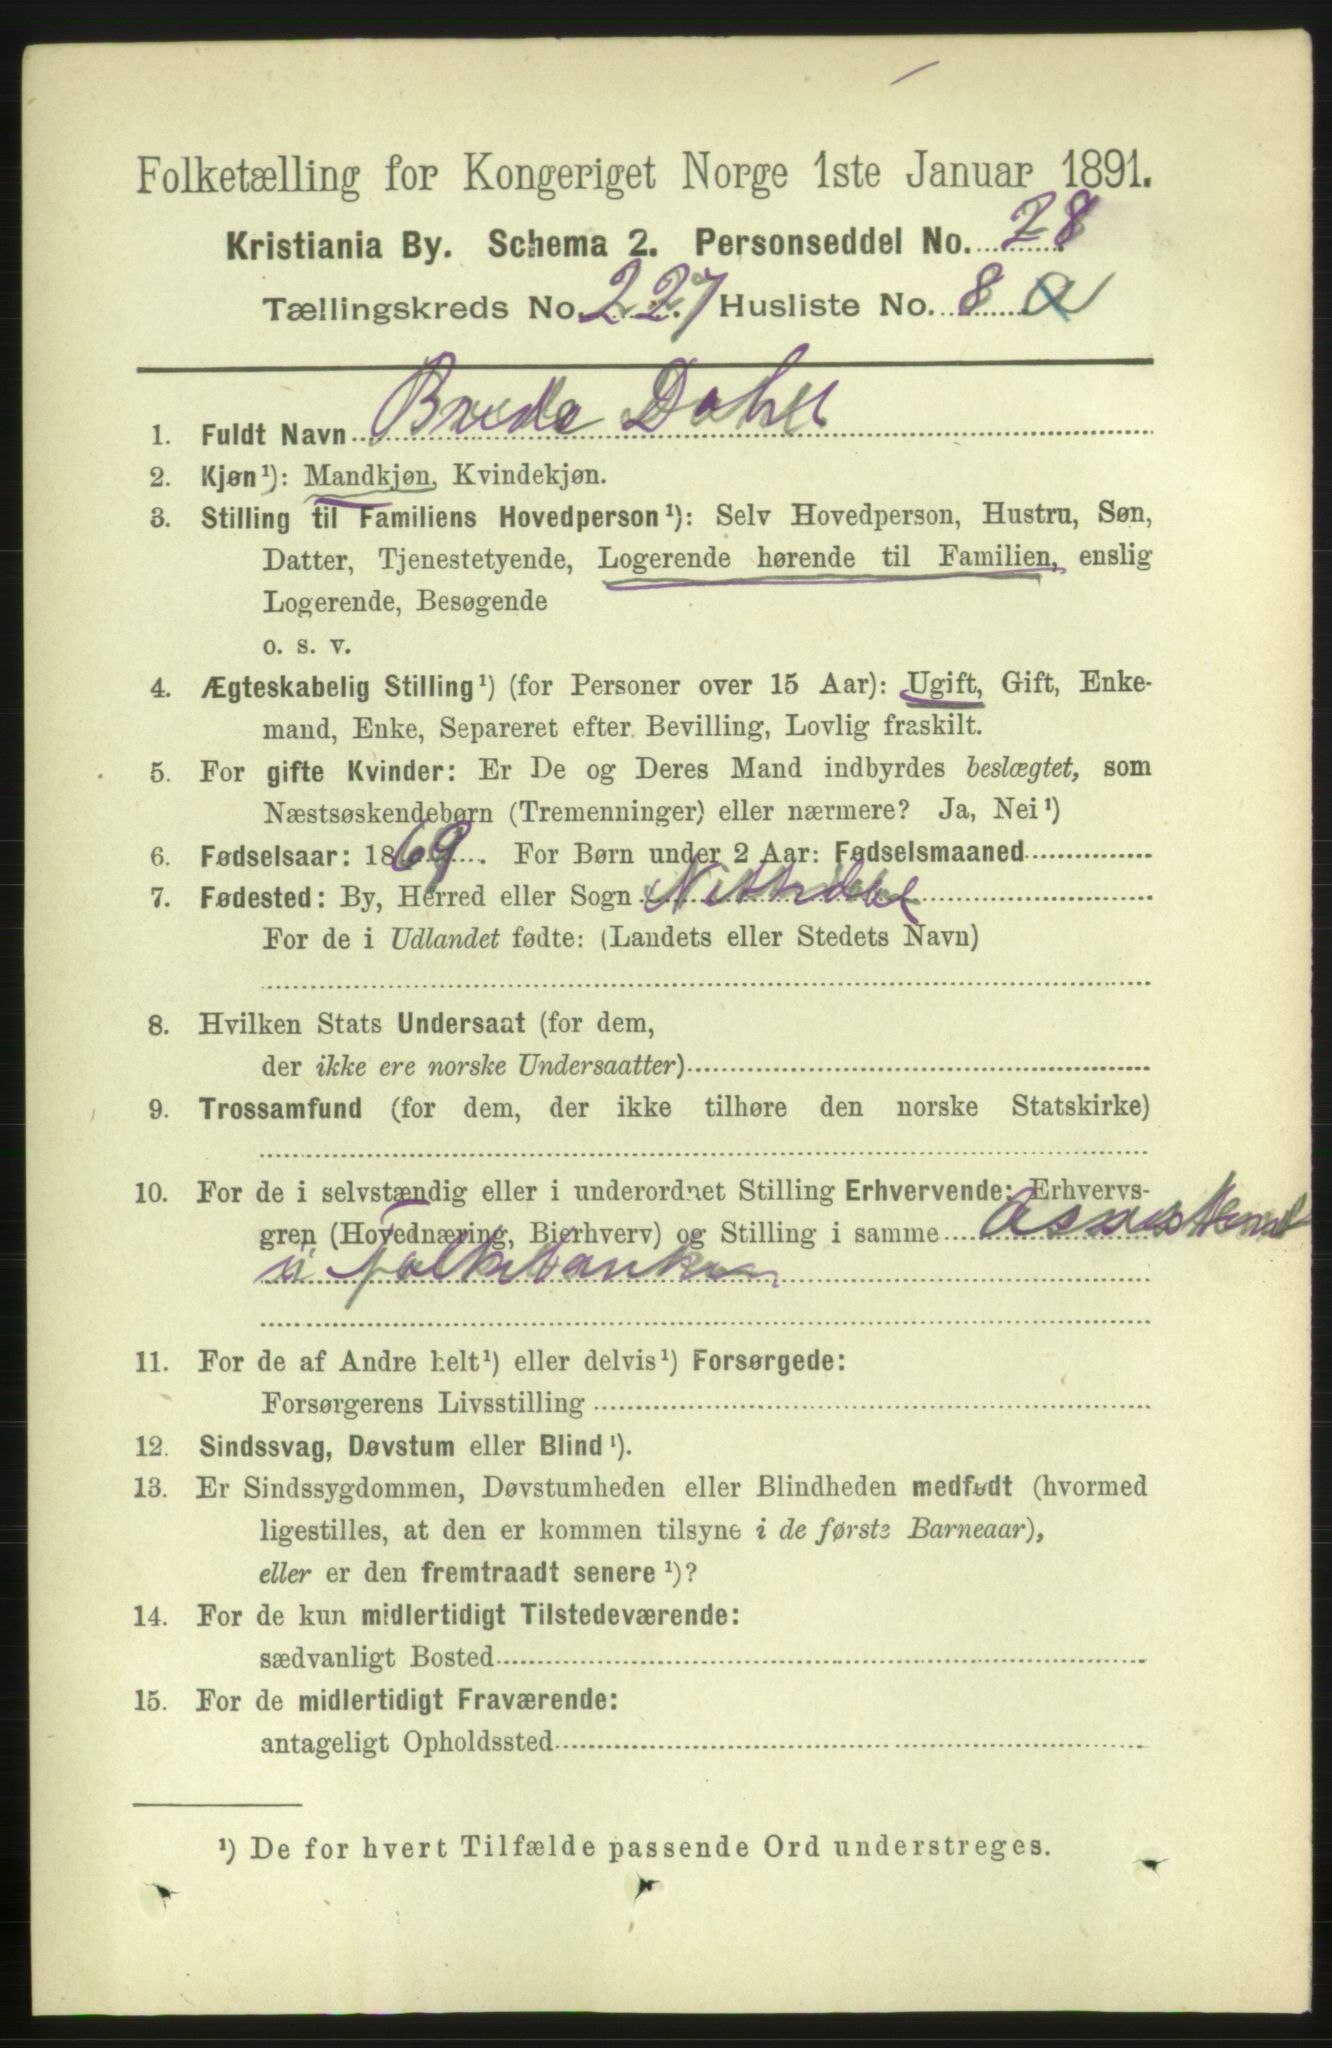 Folketælling for Kongeriget Norge 1ste Januar 1891.
Kristiania By. Schema 2. Personseddel No. 28
Tællingskreds No. 227 Husliste No. 8 a
1. Fuldt Navn Breda Dahl
2. Kjøn¹): Mandkjøn, Kvindekjøn.
3. Stilling til Familiens Hovedperson¹): Selv Hovedperson, Hustru, Søn,
Datter, Tjenestetyende, Logerende hørende til Familien, enslig
Logerende, Besøgende
o. s. v.
4. Ægteskabelig Stilling¹) (for Personer over 15 Aar): Ugift, Gift, Enke-
mand, Enke, Separeret efter Bevilling, Lovlig fraskilt.
5. For gifte Kvinder: Er De og Deres Mand indbyrdes beslægtet, som
Næstsøskendebørn (Tremenninger) eller nærmere? Ja, Nei¹)
6. Fødselsaar: 1869. For Børn under 2 Aar: Fødselsmaaned
7. Fødested: By, Herred eller Sogn Nittedal
For de i Udlandet fødte: (Landets eller Stedets Navn)
8. Hvilken Stats Undersaat (for dem,
der ikke ere norske Undersaatter)
9. Trossamfund (for dem, der ikke tilhøre den norske Statskirke)
10. For de i selvstændig eller i underordnet Stilling Erhvervende: Erhvervs-
gren (Hovednæring, Bierhverv) og Stilling i samme Assistent
i Folkebanken
11. For de af Andre helt¹) eller delvis¹) Forsørgede:
Forsørgerens Livsstilling
12. Sindssvag, Døvstum eller Blind¹).
13. Er Sindssygdommen, Døvstumheden eller Blindheden medfødt (hvormed
ligestilles, at den er kommen tilsyne i de første Barneaar),
eller er den fremtraadt senere¹)?
14. For de kun midlertidigt Tilstedeværende:
sædvanligt Bosted
15. For de midlertidigt Fraværende:
antageligt Opholdssted
¹) De for hvert Tilfælde passende Ord understreges.